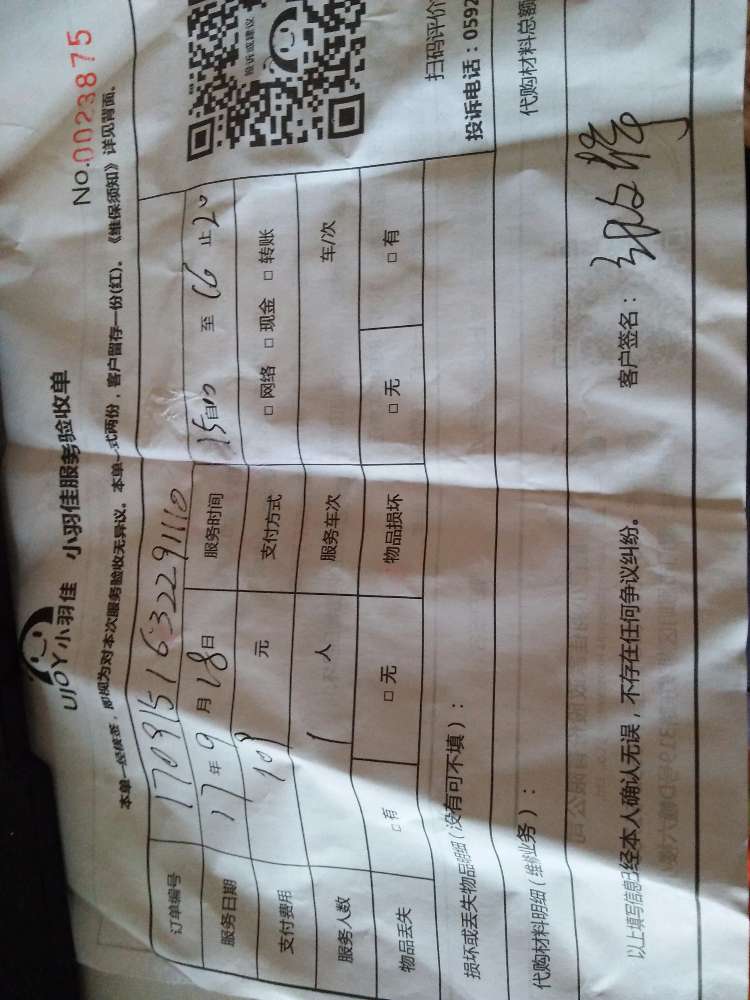 No.0023875
UJOY小羽佳 小羽佳服务验收单
本单一经签, 即视为对本次服务验收无异议。本单一式两份, 客户留存一份(红)。《维保须知》详见背面。
订单编号 1709151632291110
服务日期 17年9月18日 服务时间 15自 至 16止20
支付费用 元 支付方式 □网络 □现金 □转账
服务人数 1人 服务车次 车/次
物品丢失 □有 □无 物品损坏 □无 □有
投诉或建议
扫码评价
投诉电话:0592
损坏或丢失物品明细(没有可不填):
代购材料明细(维修业务): 代购材料总额
以上填写信息已经本人确认无误,不存在任何争议纠纷。 客户签名: